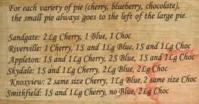 For each variery of pie (cherry, blueberry, chocolate),
the small pie always goes to the left of the large pie.
Sandgate: 2Lg Cherry, 1 Blue, 1 Choc
Riverville: 1 Cherry, 1S and 1Lg Blue, 1S and 1Lg Choc
Appleton: 1S and 1Lg Cherry, 2S Blue, 1S and 1Lg Choc
Skydale: 1S and 1Lg Cherry, 2Lg Blue, 2Lg Choc
Knoxview: 2 same size Cherry, 1Lg Blue, 2 same size Choc
Smithfield: 1S and 1Lg Cherry, no Blue, 2Lg Choc